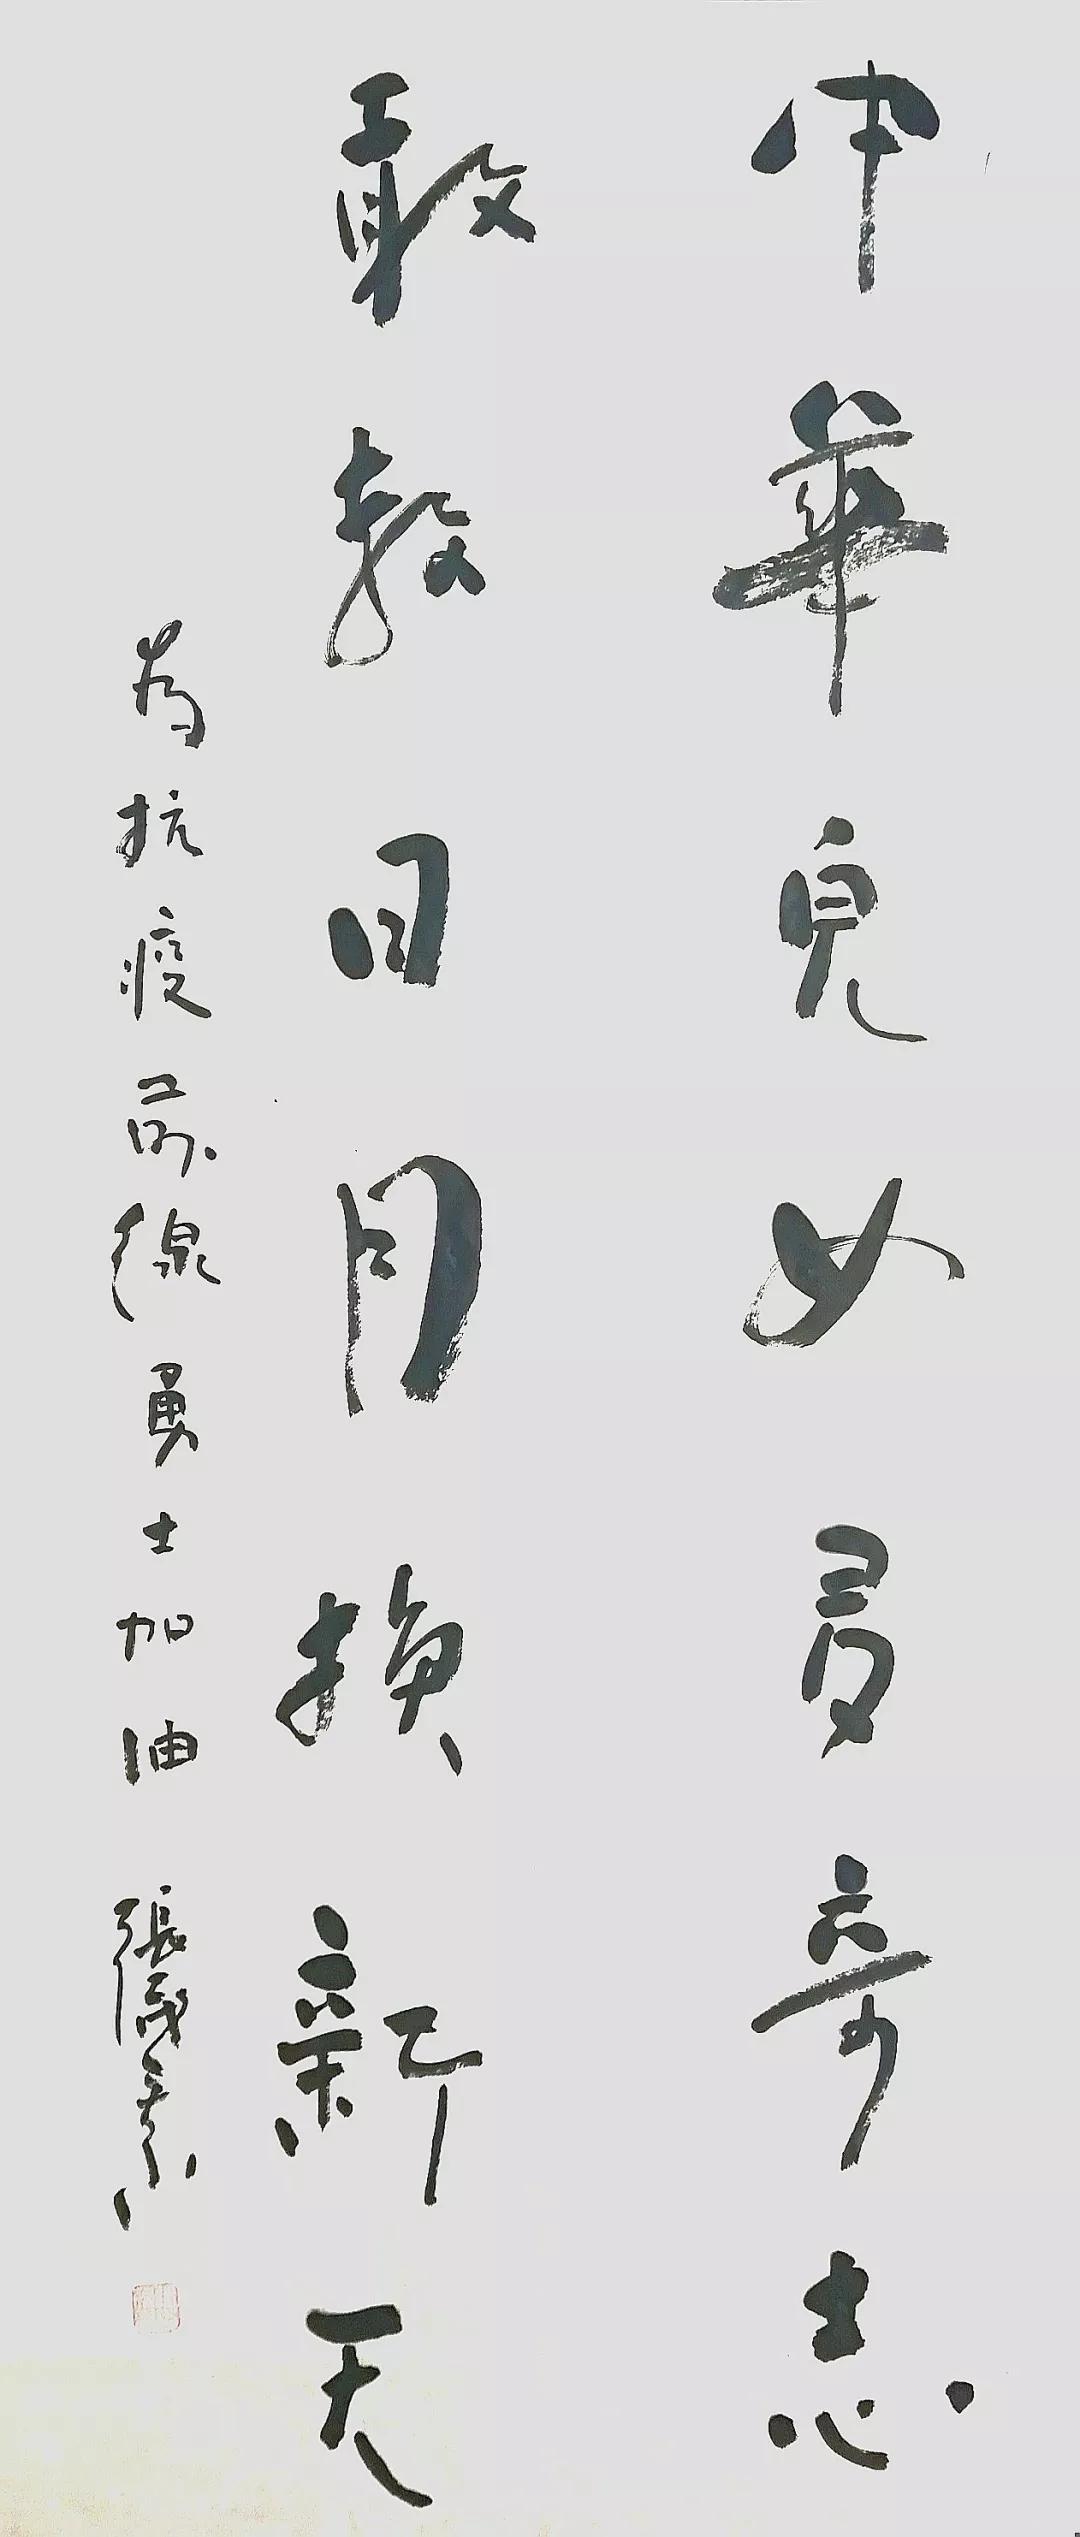 中華兒女多奇志
敢教日月換新天
為抗疫前線勇士加油 張